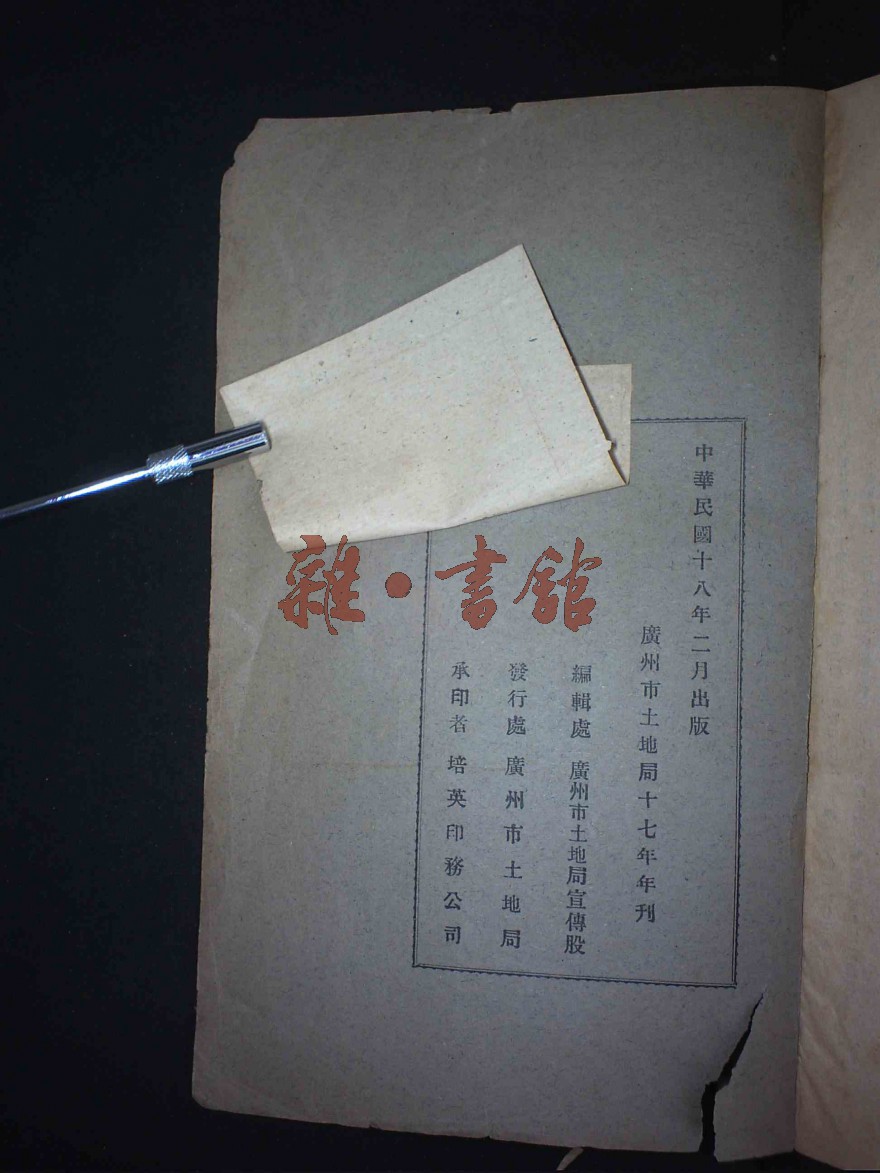 中華民國十八年二月出版
廣州市土地局十七年年刊
編輯處 廣州市土地局宣傳股
發行處 廣州市土地局
承印者 培英印務公司
雜·書館